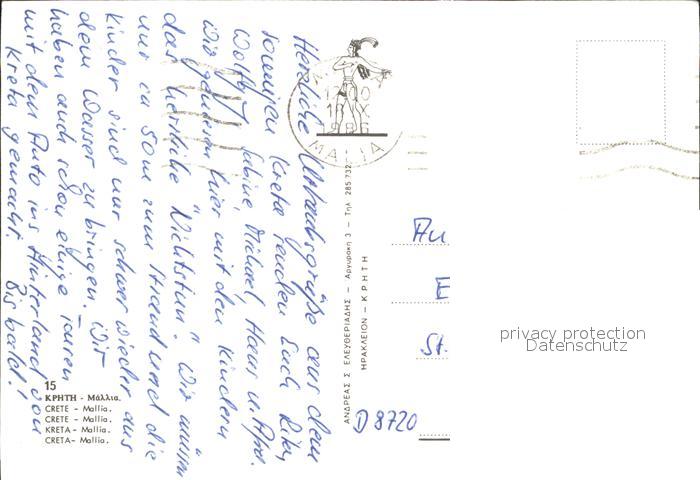 Herzliche Urlaubsgrüße aus dem
sonnigen Kreta senden Euch
Wolfg., Sabine, Michael, Haus u.
Wir genießen hier mit den Kindern
das herrliche "Nichtstun". Wir müssen
nur ca 50m zum Strand und die
Kinder sind nur schwer wieder aus
dem Wasser zu bringen. Wir
haben auch schon einige Touren
mit dem Auto ins Hinterland von
Kreta gemacht.
Bis bald!
15
ΚΡΗΤΗ - Μάλλια.
CRETE - Mallia.
CRETE - Mallia.
KRETA - Mallia.
CRETA - Mallia.
ΑΝΔΡΕΑΣ Σ ΕΛΕΥΘΕΡΙΑΔΗΣ - Αργυράκη 3 - Τηλ. 285 732
ΗΡΑΚΛΕΙΟΝ - ΚΡΗΤΗ
MALIA
1986
E
St.
D 8720
privacy protection
Datenschutz